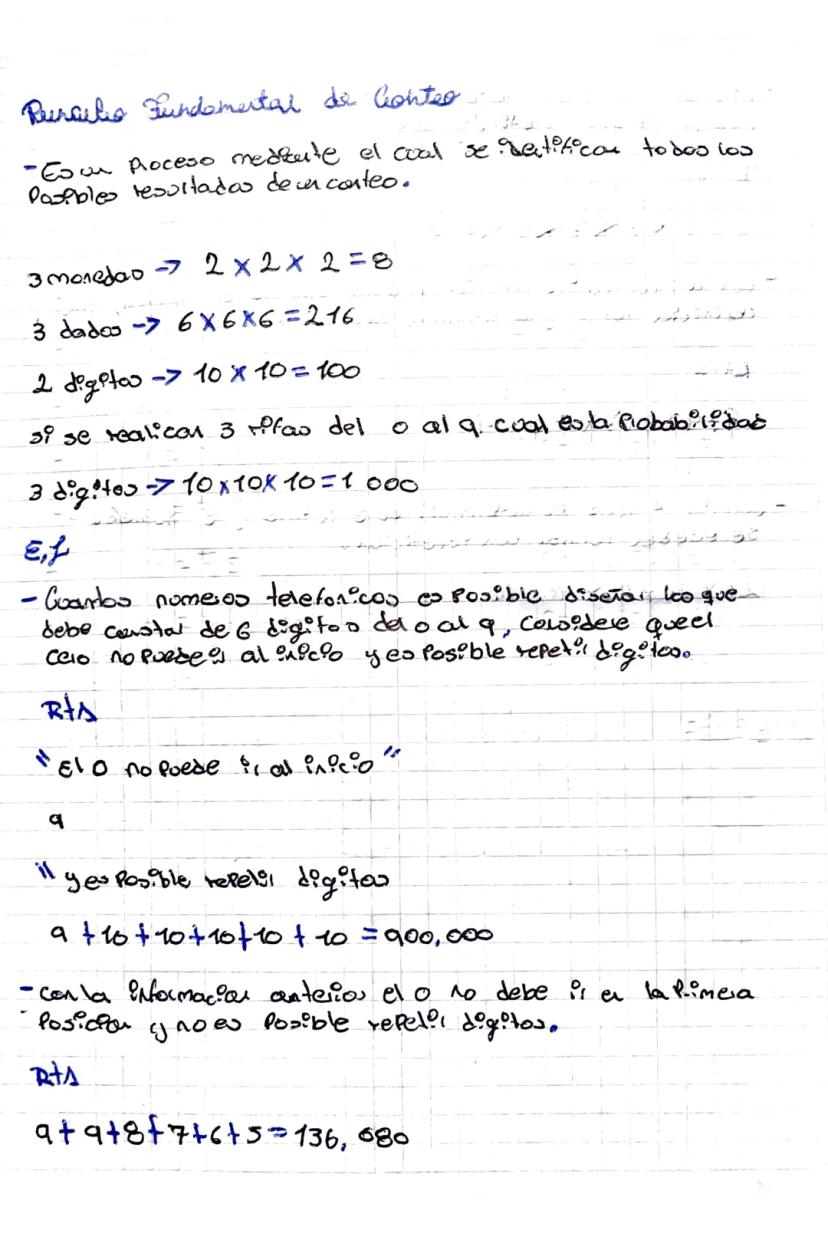 Principio Fundamental de Conteo
- Es un Proceso mediante el cual se identifican todos los
Posibles resultados de un conteo.
3 monedas -> 2 x 2 x 2 = 8
3 dados -> 6 x 6 x 6 = 216
2 digitos -> 10 x 10 = 100
si se realizan 3 rifas del 0 al 9 cual es la Probabilidad
3 digitos -> 10 x 10 x 10 = 1 000
EJ
- Cuantos numeros telefonicos es Posible diseñar los que
debe constar de 6 digitos del 0 al 9, Considere que el
cero no puede ir al inicio y es Posible repetir digitos.
RtA
"El 0 no Puede ir al inicio"
9
" y es Posible repetir digitos
9 + 10 + 10 + 10 + 10 + 10 = 900,000
- con la informacion anterior el 0 no debe ir en la Primera
Posicion y no es Posible repetir digitos.
RtA
9 + 9 + 8 + 7 + 6 + 5 = 136, 080